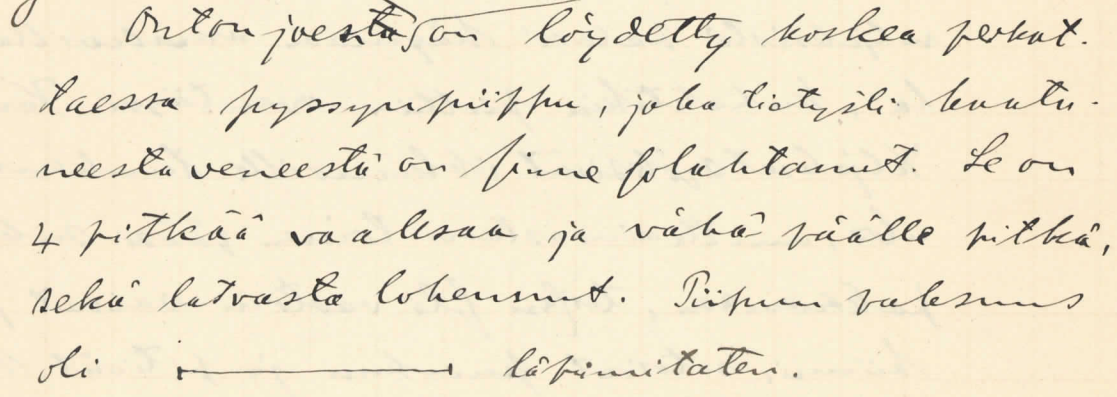 Oston joesta on löydetty koskea perkat-
taessa pyssynpiippu, joka tietysti kaatu-
neesta veneestä on sinne solahtanut. Se on
4 pitkää vaaksaa ja vähä päälle pitkä,
sekä latvasta lohennut. Piipun paksuus
oli läpimitaten.